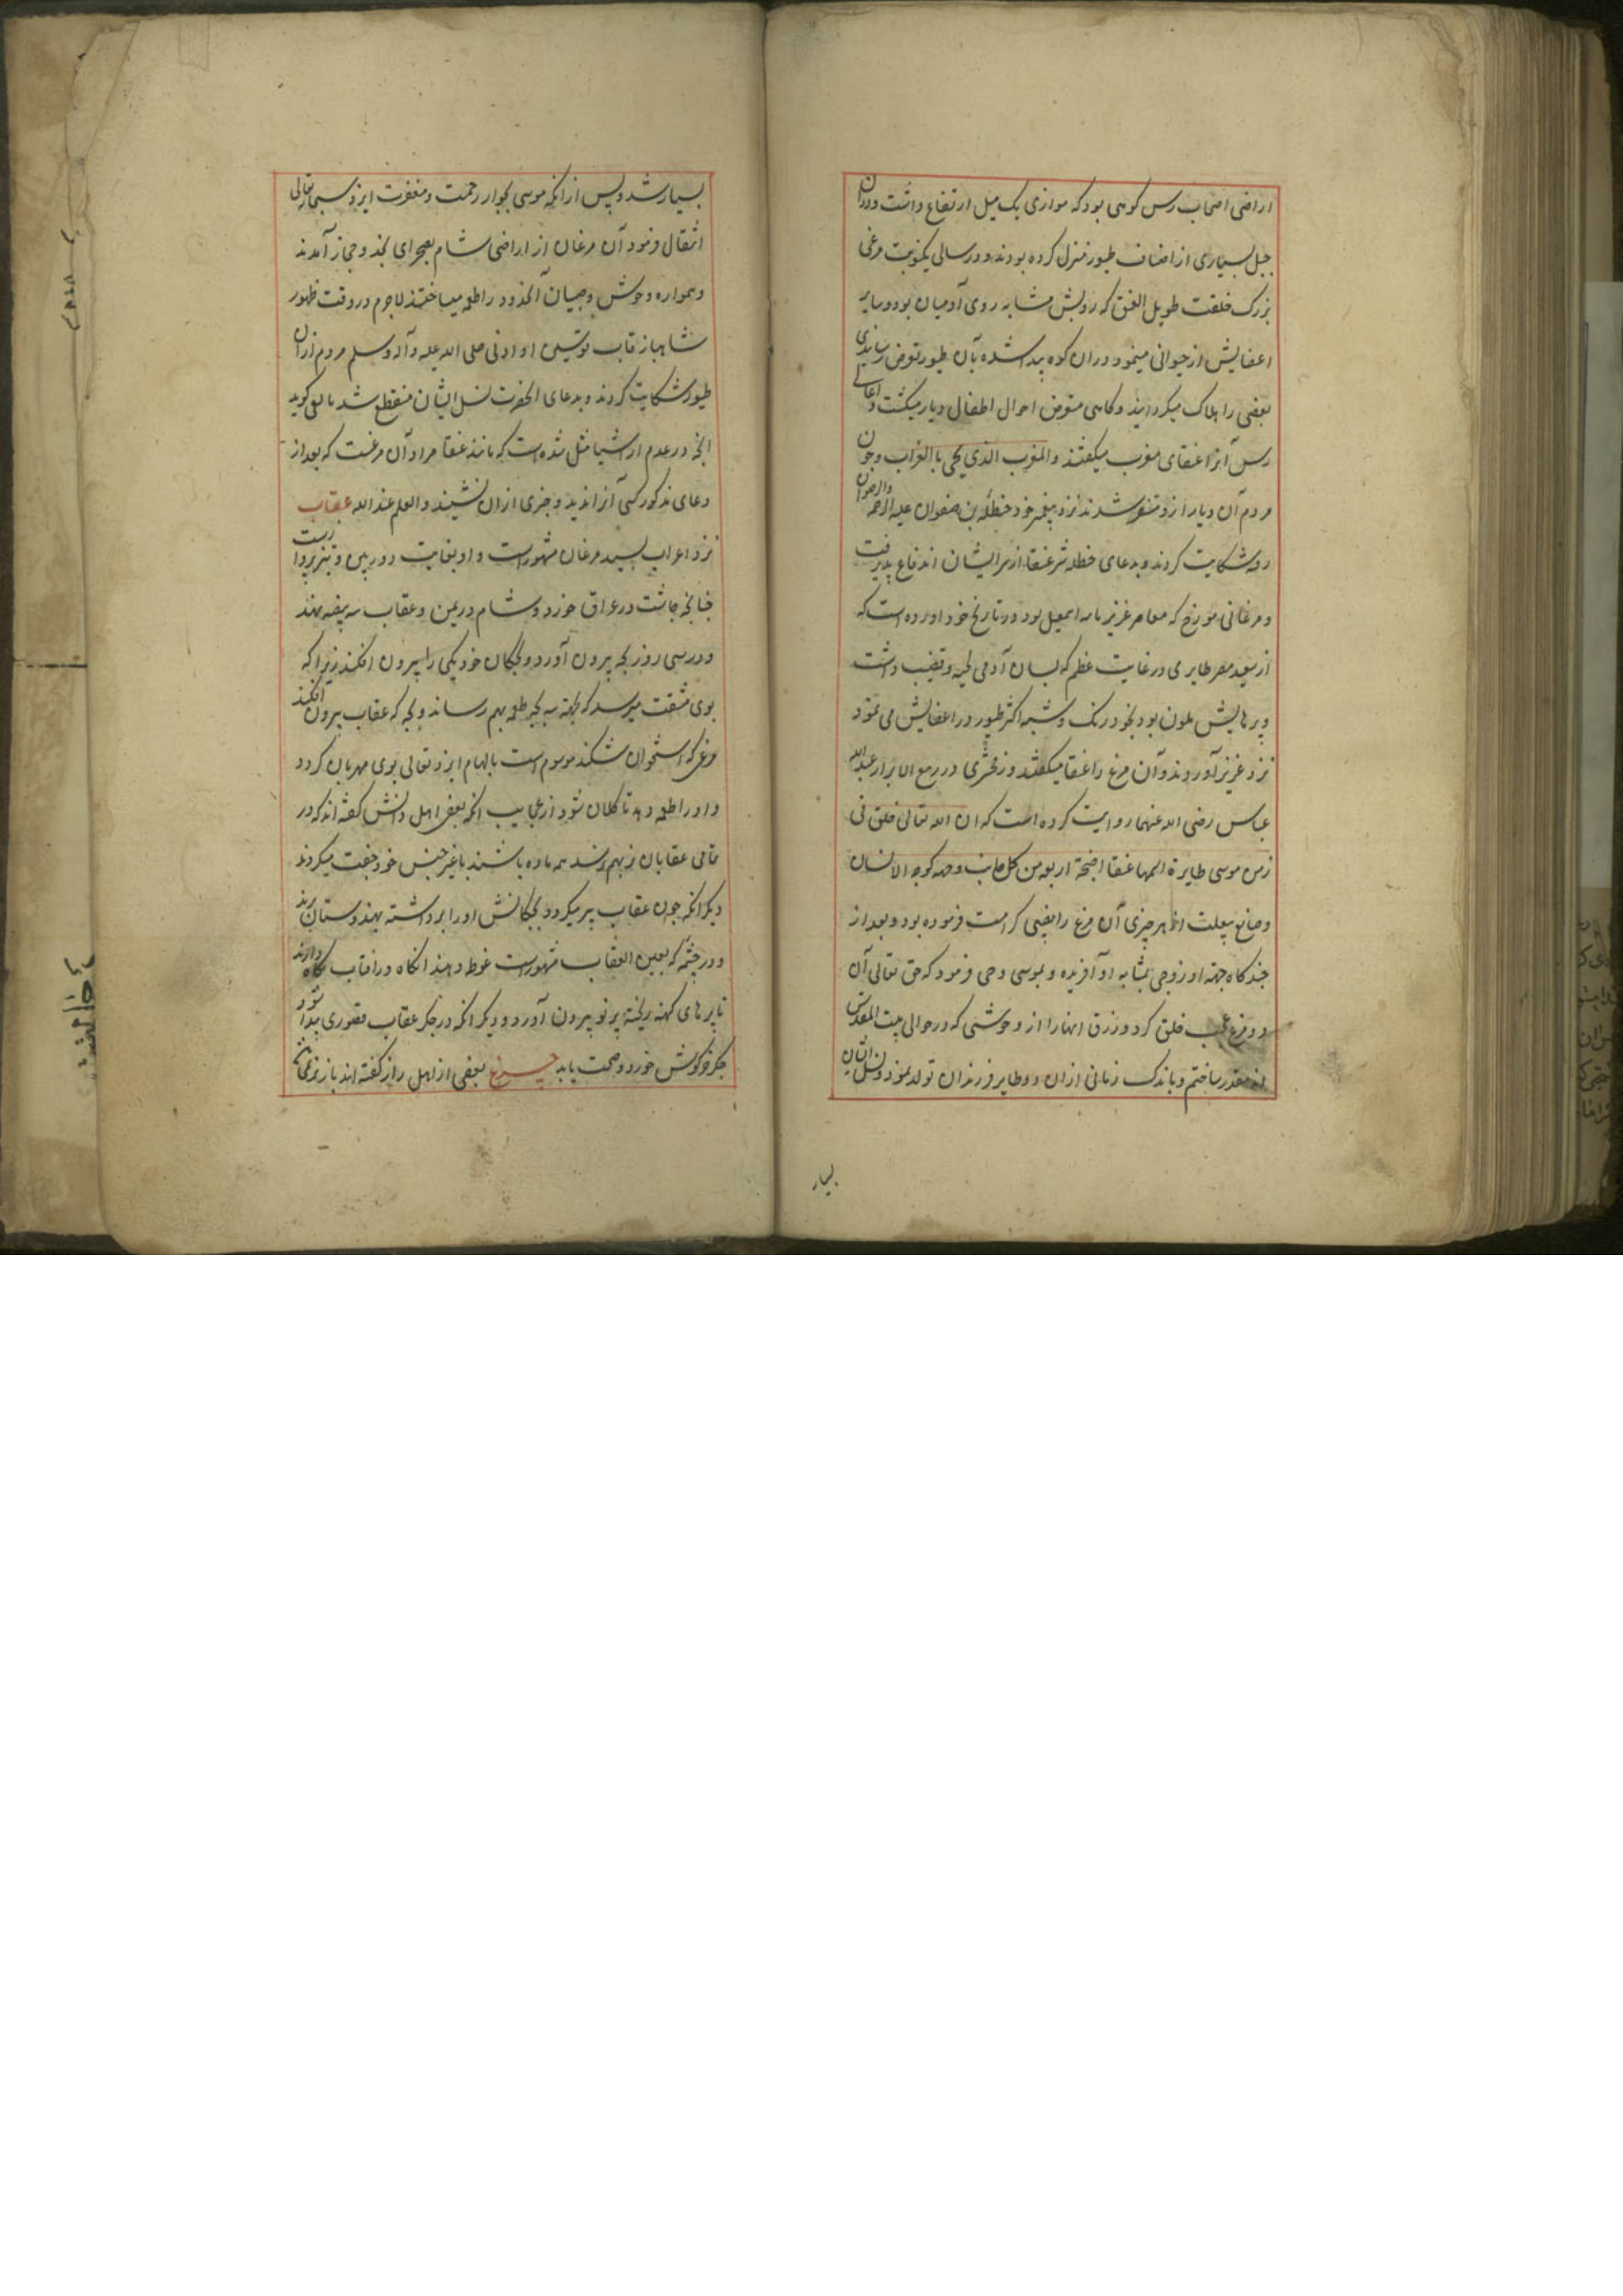 اراضی اصحاب رس کوهی بود که موازی یک میل ارتفاع داشت و دران
جبل بسیاری از اصناف طیور منزل کرده بودند و در سالی یکنوبت مرغی
بزرک خلقت طویل العنق که رویش مشابه روی آدمیان بود و سایر
اعضایش از حیوانی مینمود دران کوه پیدا شده بآن طیور تعرض رسانیدی
بعضی را هلاک میکردانید و کاهی متعرض احوال اطفال دیار میکشت و اهالی
رس آنرا عنقای مغرب میکفتند و المغرب الذی یجی بالغراب و چون
مردم آن دیار ازو متنفر شدند نزد پیغمبر خود حنظلة بن صفوان علیه الرحمه والرضوان
رفته شکایت کردند و بدعای حنظله شر عنقا از سر ایشان اندفاع پذیرفت
و فرغانی مورخ که معاصر عزیز بالله اسمعیل بود در تاریخ خود اورده است که
از صعید مصر طایری در غایت عظم که بسان آدمی لحیه و غبغب داشت
و پرهایش ملون بود بچند رنک و شبیه اکثر طیور در اعضایش می نمود
نزد عزیز آوردند و آن مرغ را عنقا میکفتند و زمخشری در ربیع الابرار عبدالله
عباس رضی الله عنهما روایت کرده است که ان الله تعالی خلق فی
زمن موسی طایرة اسمها عنقا اجنحة اربعه من کل جانب وجهه کوجه الانسان
و صانع بیعلت از هر چیزی آن مرغ را نصیبی کرامت فرموده بود و بعد از
چند کاه جهة او زوجی بمثابه او آفریده و بموسی وحی فرمود که حق تعالی آن
دو مرغ عجب خلق کرد و رزق انها را از وحوشی که در حوالی بیت المقدس
اند مقدر ساختم و باندک زمانی ازان دو طایر فرزندان تولد نمود و نسل ایشان
بسیار
بسیار شد و پس از انکه موسی بجوار رحمت و مغفرت ایزد سبحانه تعالی
انتقال فرمود آن مرغان از اراضی شام بصحرای نجد و حجاز آمدند
و همواره وحوش و صبیان آنحدود را طعمه میساختند لاجرم در وقت ظهور
شاهباز قاب قوسین او ادنی صلی الله علیه و آله وسلم مردم ازان
طیور شکایت کردند و بدعای انحضرت نسل ایشان منقطع شد یافعی کوید
انچه در عدم از اشیا مثل شده است که مانند عنقا مراد آن مرغست که بعد از
دعای مذکور کسی آنرا ندید و خبری ازان نشنید والعلم عند الله عقاب
نزد اعراب بسید مرغان مشهور است و او بغایت دوربین و تیزپرواز است
چنانچه چاشت در عراق خورد و شام در یمن و عقاب سه بیضه نهد
و در سی روز بچه بیرون آورد و بچکان خود یکی را بیرون افکند زیرا که
بوی مشقت میرسد که بجهة سه بچه طعمه بهم رساند و بچه که عقاب بیرون افکند
مرغی که استخوان شکند موسوم است بالهام ایزد تعالی بوی مهربان کردد
و او را طعمه دهد تا کلان شود از عجایب انکه بعضی اهل دانش کفته اند که در
تمامی عقابان نر بهم نرسد همه ماده باشند با غیر جنس خود جفت میکردند
دیکر انکه چون عقاب پیر میکردد بچکانش اورا برداشته بهندوستان برند
و در چشمه که بعین العقاب مشهور است غوطه دهند انکاه در افتاب نکاه دارند
تا پرهای کهنه ریخته پر نو بیرون آورد و دیکر انکه در جکر عقاب قصوری پیدا شود
جکر خرکوش خورد و صحت یابد بعضی از اهل راز کفته اند